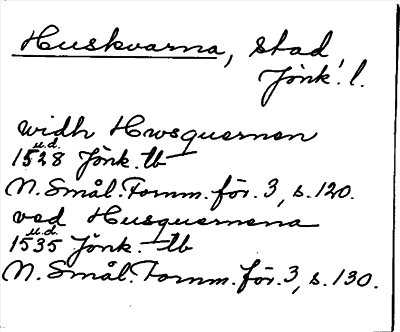 Huskvarna, stad
Jönk. l.
widh Hwsquernen
u.d.
1528 Jönk. tb
N. Smål. Fornm. för. 3, s. 120.
ved Husquernena
u.d.
1535 Jönk. tb
N. Smål. Fornm. för. 3, s. 130.